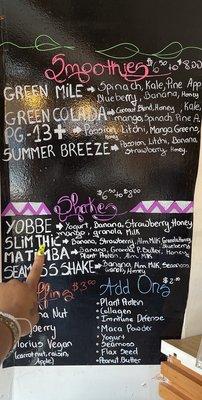 Smoothies $6.00 to $8.00
GREEN MILE → Spinach, Kale, Pine App
Blueberry, Banana, Honey
GREEN COLADA → Coconut Blend, Honey, Kale,
mango, Spinach Pine A.
PG-13+ → Passion, Litchi, Mango, Greens,
SUMMER BREEZE → Passion, Litchi, Banana
Strawberry, Honey.
Shakes $6 to $8.00
YOBBE → Yogurt, Banana, Strawberry, Honey
mango, granola Milk
SLIM THIC → Banana, Strawberry, Alm. Milk, Granola
MATIMBA → Banana, Granola, P. Butter, Blueberry
Plant Protein, Alm. Milk
SEAMOSS SHAKE → Banana, Alm. Milk, Seamoss
Granola, Honey
Add Ons $2.00
Plant Protein
Nut
Collagen
Immune Defense
berry
Maca Powder
Vegan
Yogurt
(carrot, raisin,
Seamoss
Flax Seed
Peanut Butter